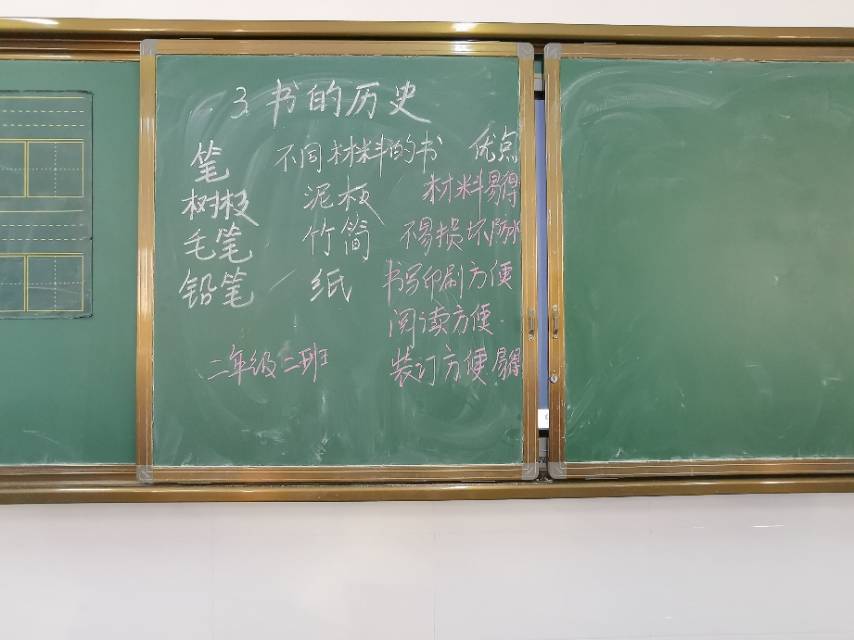 3. 书的历史
笔 不同材料的书 优点
树枝 泥板 材料易得
毛笔 竹简 不易损坏防水
铅笔 纸 书写印刷方便
阅读方便
二年级二班 装订方便易得